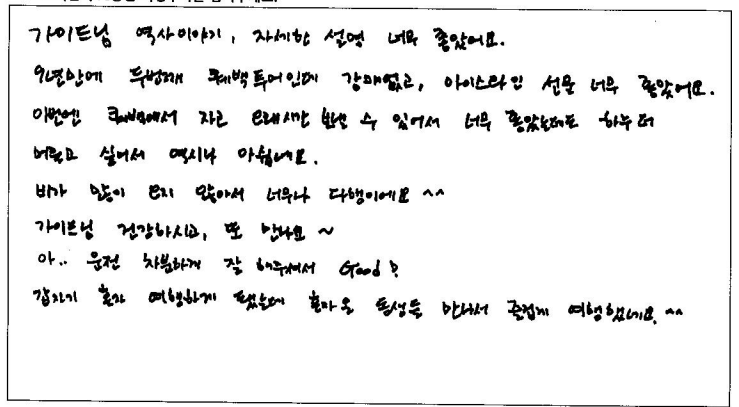 가이드님 역사이야기, 자세한 설명 너무 좋았어요.
9년만에 두번째 퀘백투어인데 강매없고, 아이스와인 선물 너무 좋았어요.
이번엔 퀘백에서 자고 오래시간 보낼 수 있어서 너무 좋았는데도 하루 더
머물고 싶어서 역시나 아쉽네요.
비가 많이 오지 않아서 너무나 다행이에요 ^^
가이드님 건강하시고, 또 만나요 ~
아.. 운전 차분하게 잘 해주셔서 Good!
갑자기 혼자 여행하게 됐는데 혼자온 동생들 만나서 즐겁게 여행했네요. ^^